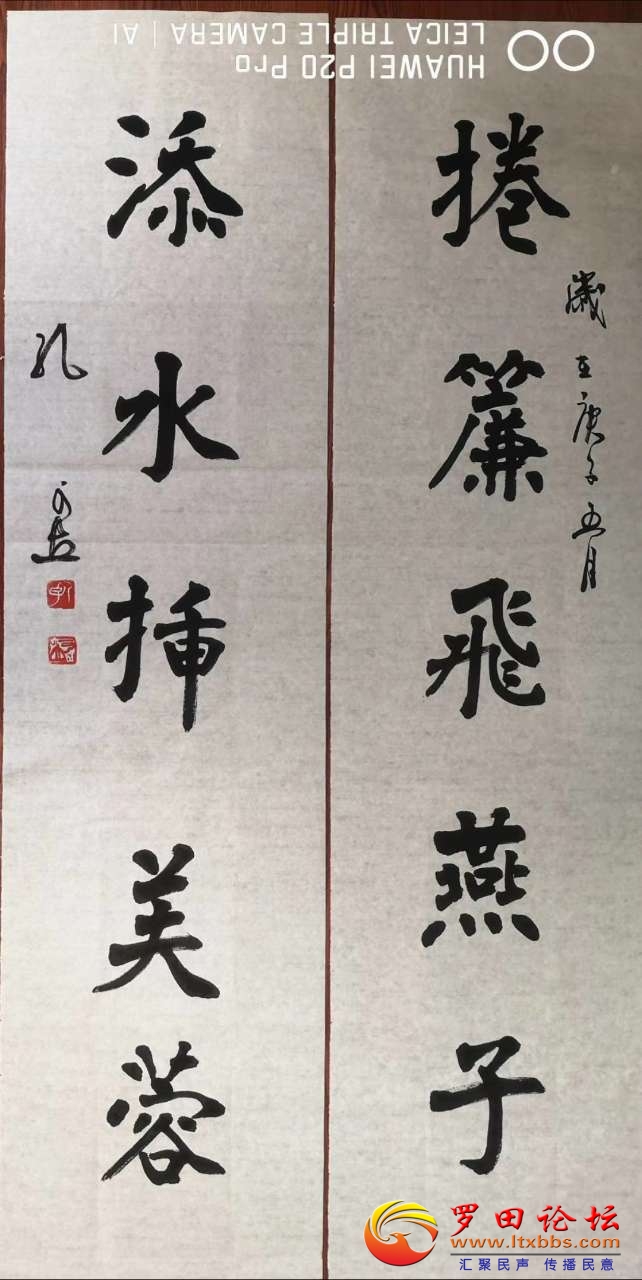 捲簾飛燕子
歲在庚子五月
添水挿芙蓉
孔
HUAWEI P20 Pro
LEICA TRIPLE CAMERA | AI
罗田论坛
www.ltxbbs.com
汇聚民声 传播民意